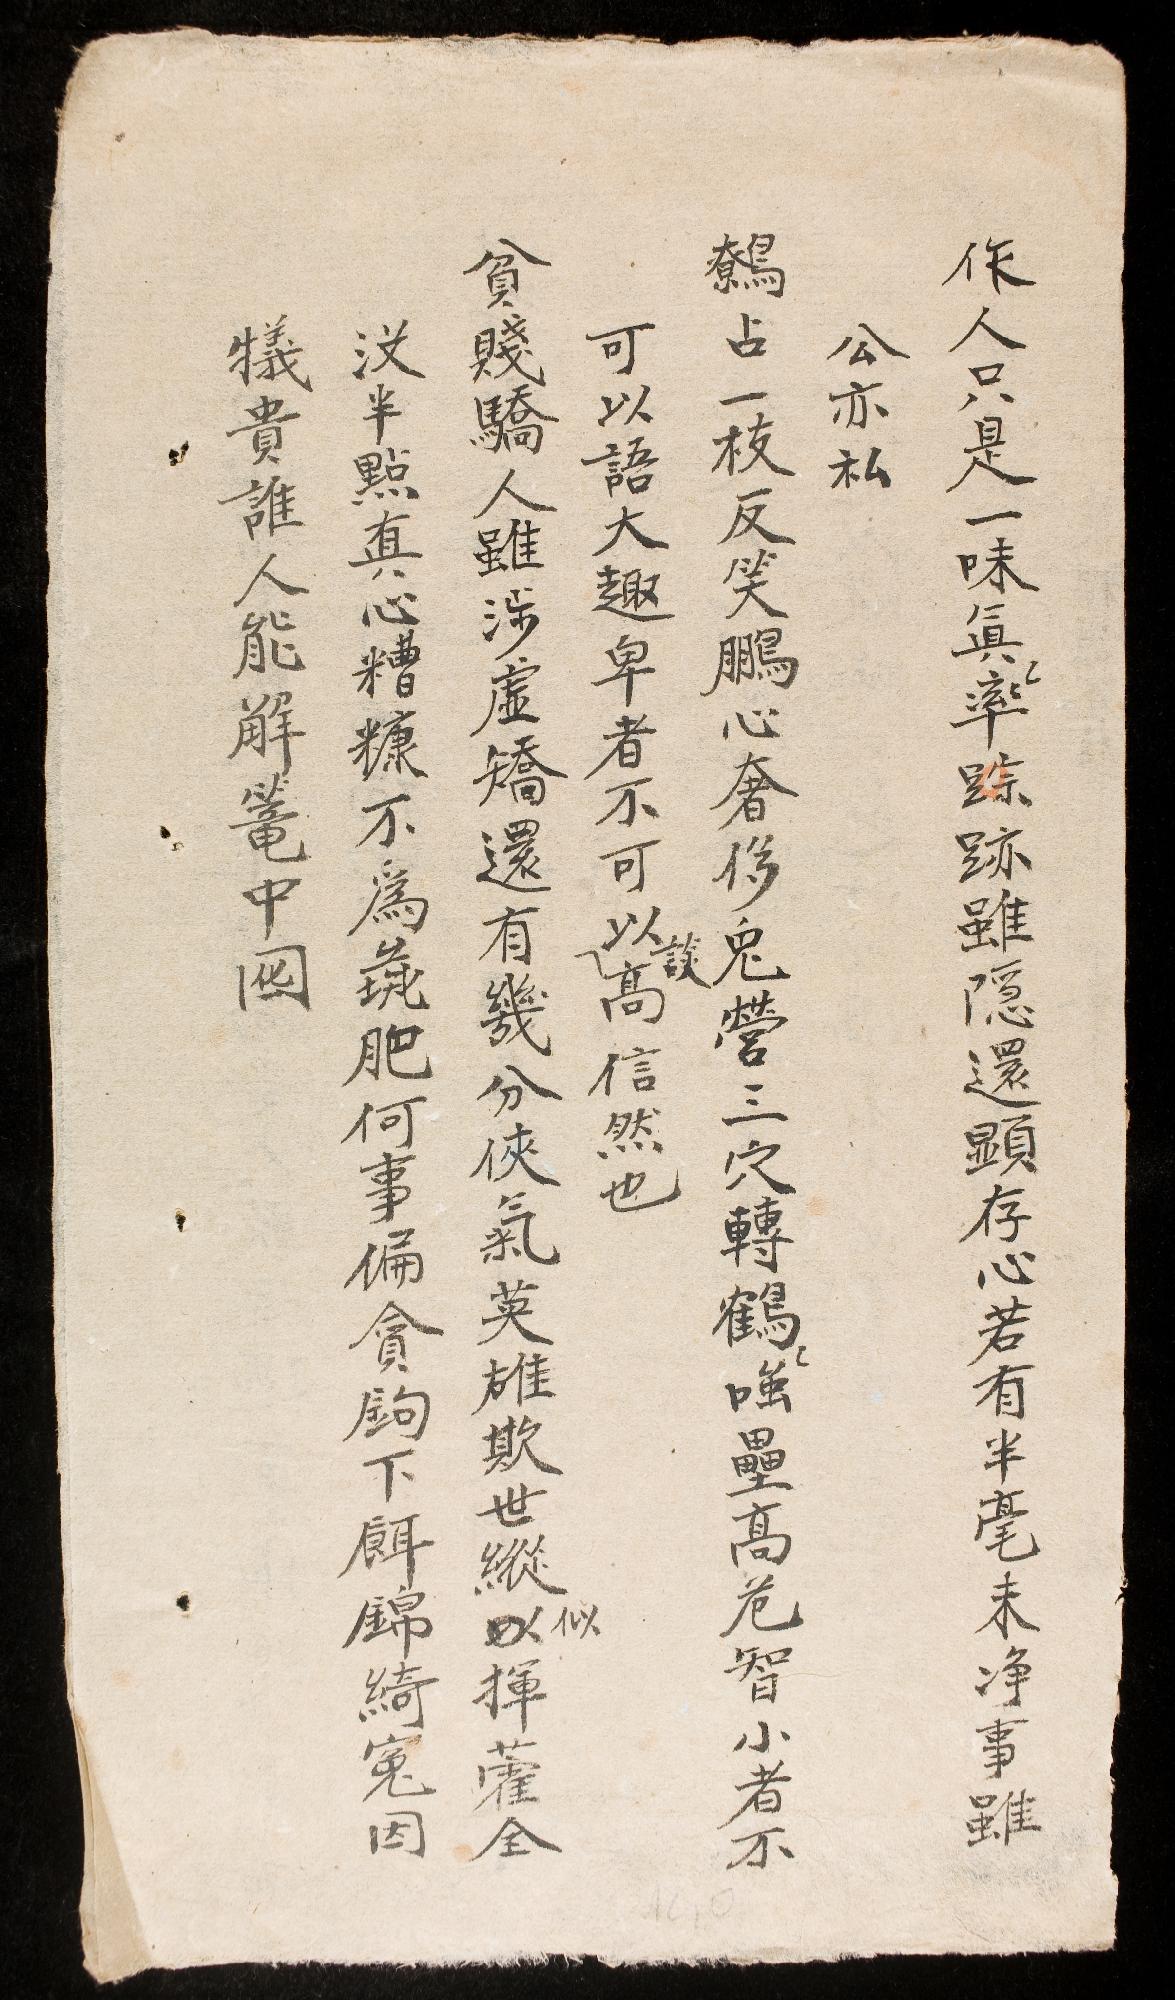 作人只是一味眞率踪跡雖隠還顕存心若有半毫未浄事雖
公亦私
鷯占一枝反笑鵬心奢侈兎營三穴轉鶴嗤壘高危智小者不
可以語大趣卑者不可以談高信然也
貧賤驕人雖涉虚矯還有幾分俠氣英雄欺世縱似揮藿全
没半點真心糟糠不為彘肥何事偏貪鉤下餌錦綺寃因
犠貴誰人能解篭中囮